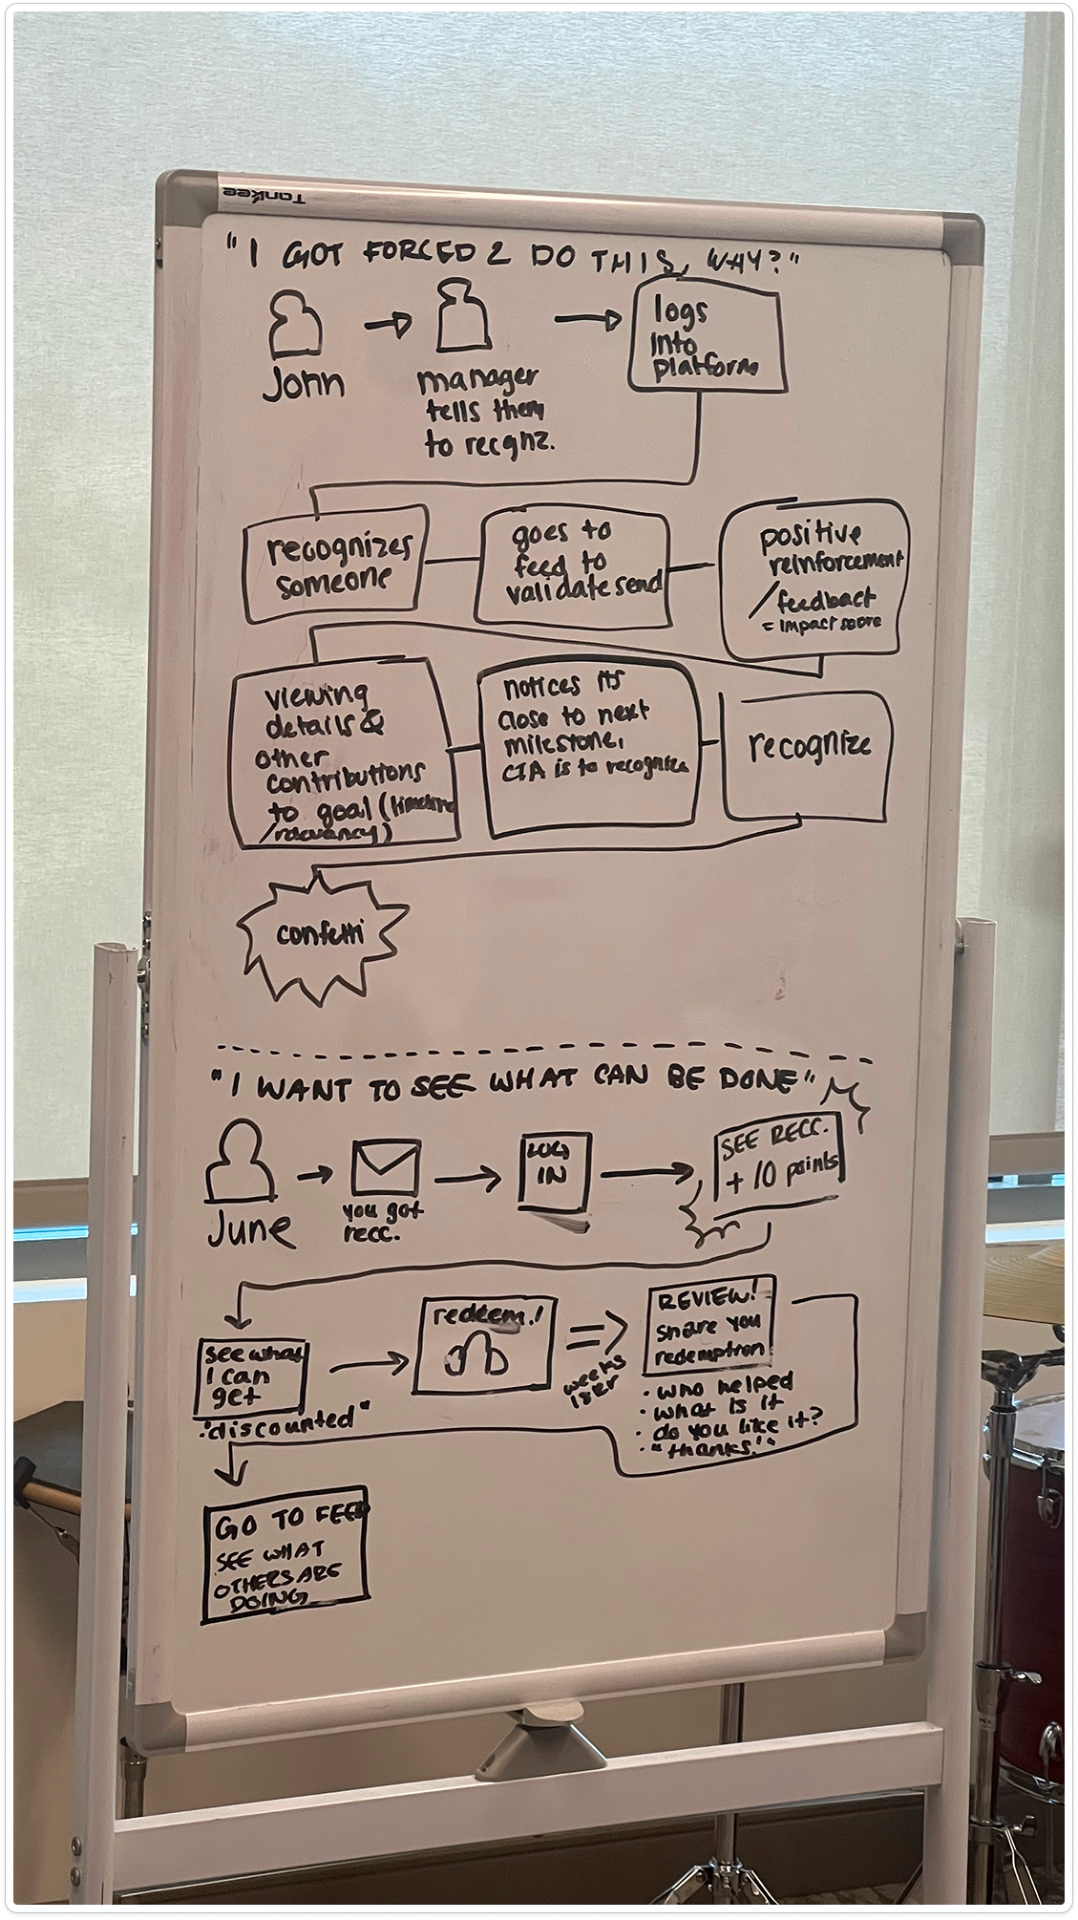 Tankee
"I GOT FORCED 2 DO THIS, WHY?"
John
manager
tells them
to recgnz.
logs
into
platform
recognizes
someone
goes to
feed to
validate send
positive
reinforcement
/feedback
= impact score
viewing
details &
other
contributions
to goal (timeline
/relevancy)
notices its
close to next
milestone,
CTA is to recognize
recognize
confetti
"I WANT TO SEE WHAT CAN BE DONE"
June
you got
recc.
LOG
IN
SEE RECC.
+ 10 points
see what
I can
get
"discounted"
redeem!
weeks
REVIEW!
share you
redemption
• who helped
• what is it
• do you like it?
• "thanks!"
GO TO FEED
SEE WHAT
OTHERS ARE
DOING